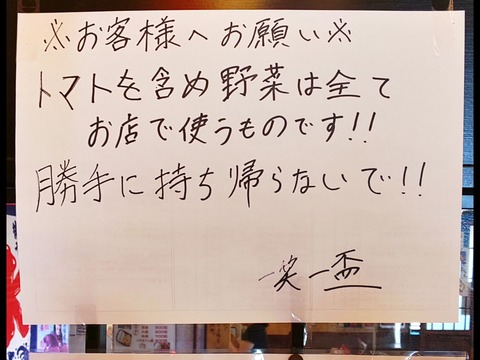 ※お客様へお願い※
トマトを含め野菜は全て
お店で使うものです!!
勝手に持ち帰らないで!!
一笑一盃